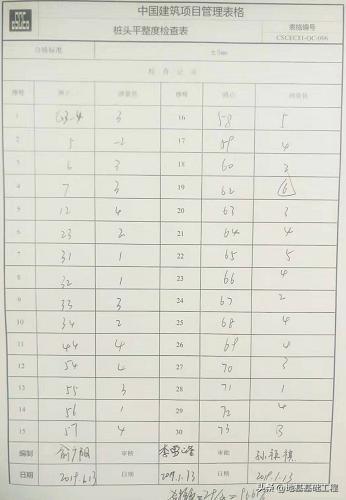 中国建筑项目管理表格
桩头平整度检查表
表格编号
CSCEC81-QC-096
合格标准 ±5mm
检查记录
序号 测点 测量值 序号 测点 测量值
1 3 16 58 5
2 5 -2 17 59 4
3 6 3 18 60
4 7 3 19 62 6
5 12 4 20 63 3
6 23 2 21 64 4
7 31 1 22 65 5
8 32 1 23 66 4
9 33 3 24 67 2
10 34 2 25 68 4
11 44 4 26 69 4
12 54 4 27 70 3
13 55 3 28 71 1
14 56 1 29 72 4
15 57 4 30 73 3
编制 审核 审批
日期 2019.1.13 日期 2019.1.13 日期 2019.1.13
头条@地基基础工程